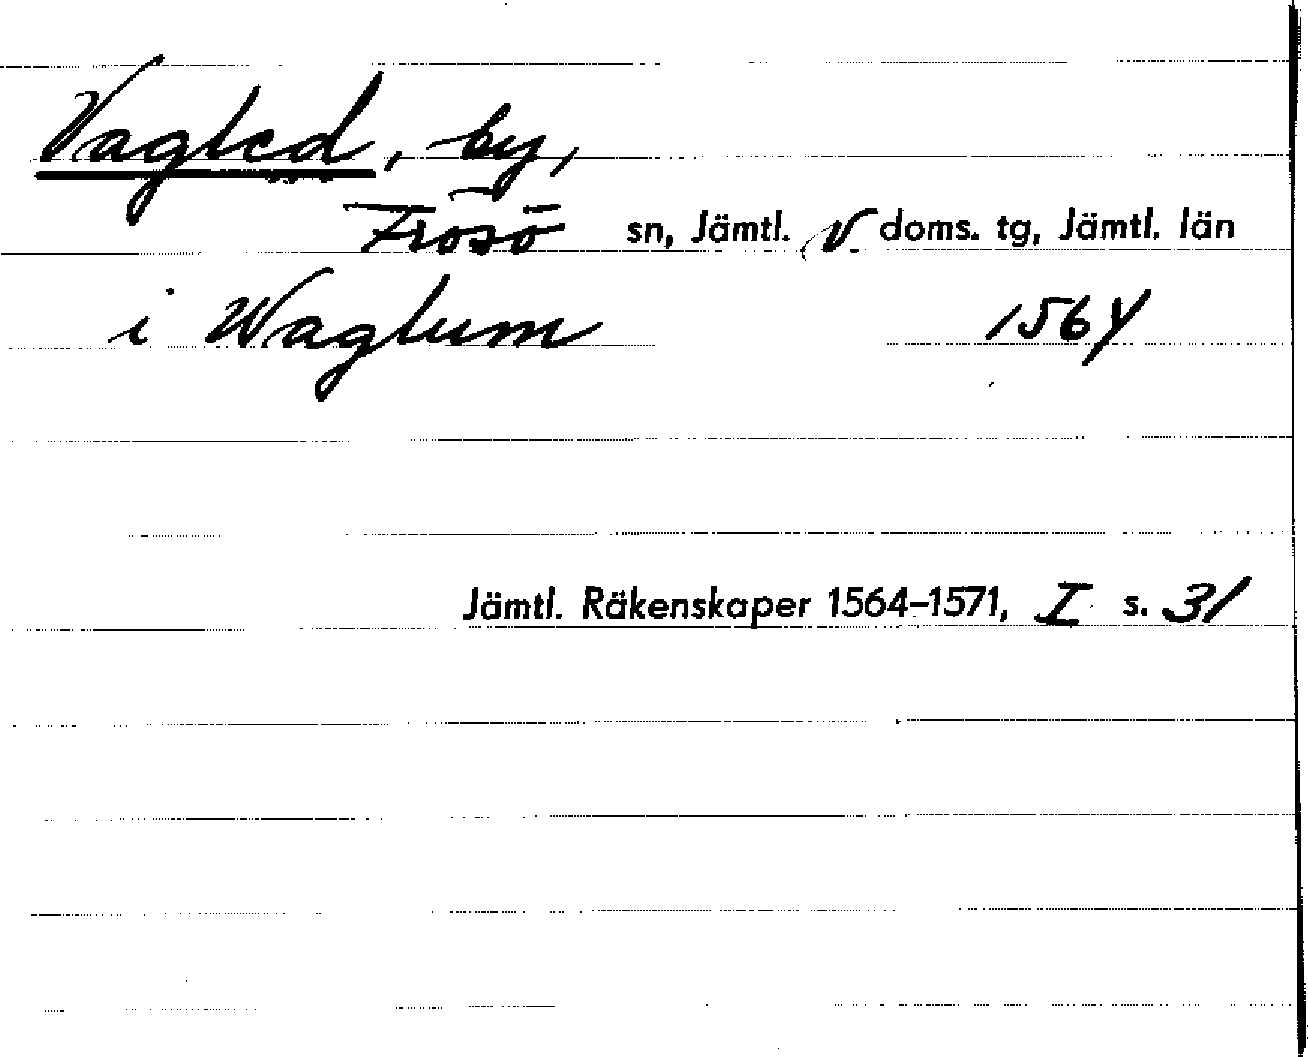 Vagled, by,
Frösö sn, Jämtl. V doms. tg, Jämtl. län
i Waglum 1564
Jämtl. Räkenskaper 1564-1571, I s. 31